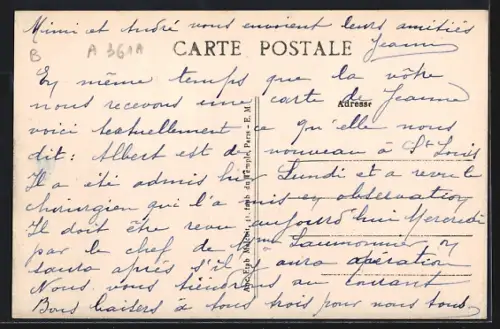 Mimi et André vous envoient leurs amitiés
Jeanne
B
A 361A
CARTE POSTALE
En même temps que la vôtre
nous recevons une carte de Jeanne
Adresse
voici textuellement ce qu'elle nous
dit : Albert est de nouveau à St Louis
Il a été admis hier Lundi et a revu le
chirurgien qui l'a mis en observation
Il doit être revu aujourd'hui Mercredi
par le chef de Mr Laumonnier on
saura après s'il y aura opération
Nous vous tiendrons au courant
Bons baisers à tous trois pour nous tous
du Temple, Paris - E. M.